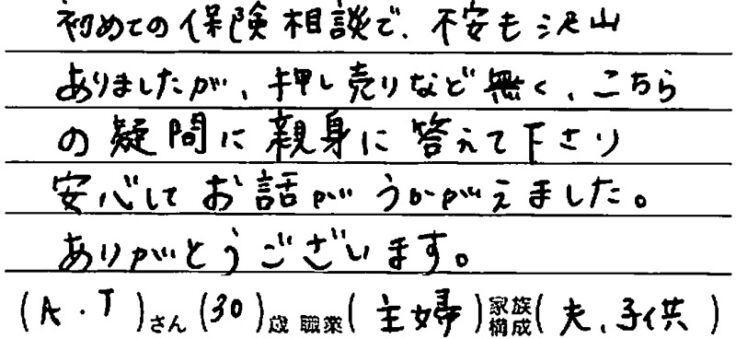 初めての保険相談で、不安も沢山
ありましたが、押し売りなど無く、こちら
の疑問に親身に答えて下さり
安心してお話がうかがえました。
ありがとうございます。
(A・T)さん(30)歳 職業(主婦)家族構成(夫、子供)